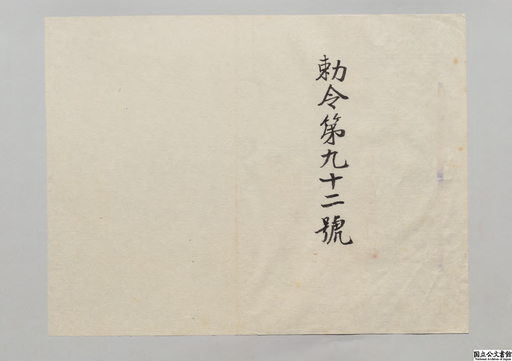 勅令第九十二號
国立公文書館
National Archives of Japan